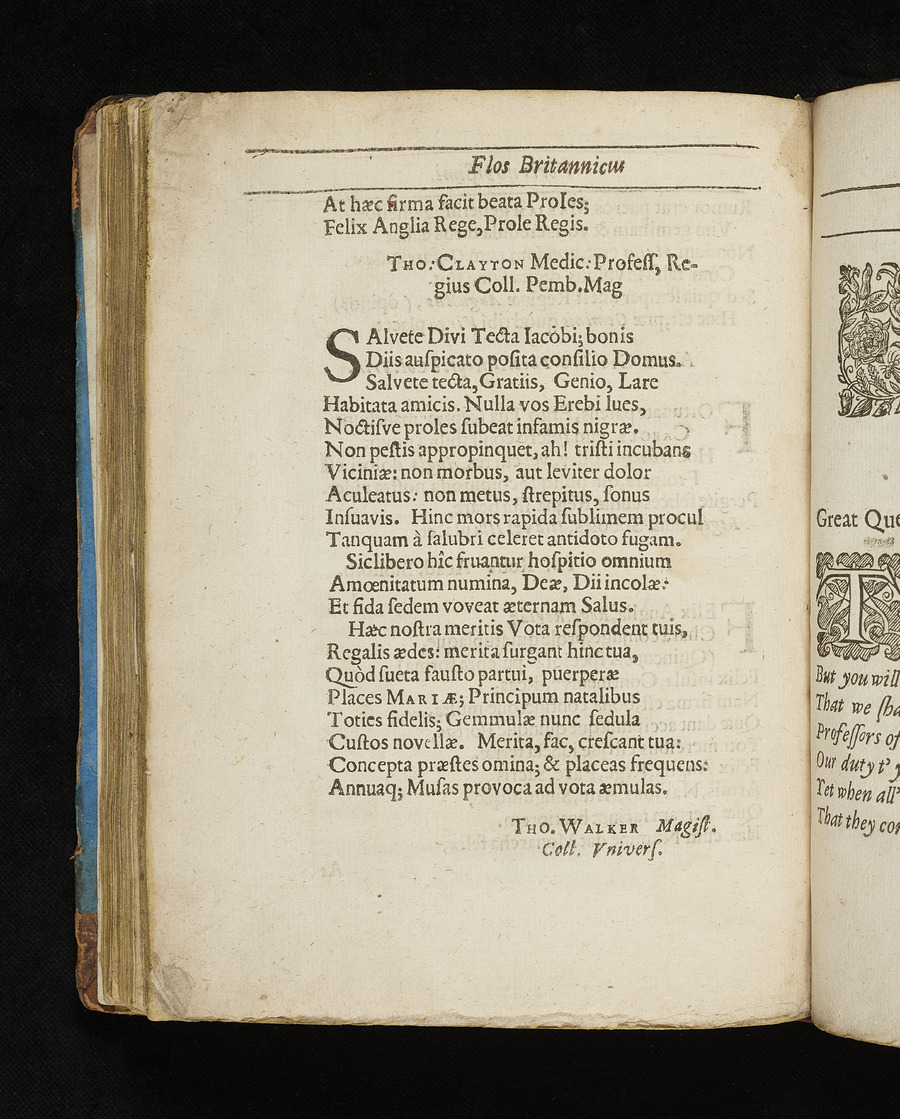 Flos Britannicus
At hæc firma facit beata Proles;
Felix Anglia Rege, Prole Regis.
THO: CLAYTON Medic: Profeſſ, Re-
gius Coll. Pemb. Mag
SAlvete Divi Tecta Iacòbi; bonis
Diis auſpicato poſita conſilio Domus.
Salvete tecta, Gratiis, Genio, Lare
Habitata amicis. Nulla vos Erebi lues,
Noctiſve proles ſubeat infamis nigræ.
Non peſtis appropinquet, ah! triſti incubans
Viciniæ: non morbus, aut leviter dolor
Aculeatus: non metus, ſtrepitus, ſonus
Inſuavis. Hinc mors rapida ſublimem procul
Tanquam à ſalubri celeret antidoto fugam.
Sic libero hîc fruantur hoſpitio omnium
Amœnitatum numina, Deæ, Dii incolæ:
Et fida ſedem voveat æternam Salus.
Hæc noſtra meritis Vota reſpondent tuis,
Regalis ædes: merita ſurgant hinc tua,
Quòd ſueta fauſto partui, puerperæ
Places MARIÆ; Principum natalibus
Toties fidelis; Gemmulæ nunc ſedula
Cuſtos novellæ. Merita, fac, creſcant tua:
Concepta præſtes omina; & placeas frequens:
Annuaq; Muſas provoca ad vota æmulas.
THO. WALKER Magiſt.
Coll. Vniverſ.
Great Que
T
But you will
That we ſha
Profeſſors of
Our duty t' y
Yet when all'
That they con